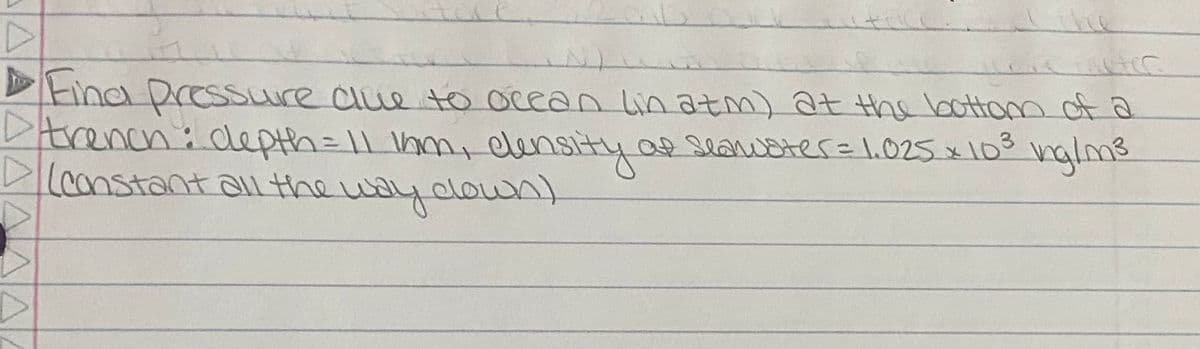 Find pressure due to ocean (in atm) at the bottom of a
trench: depth = 11 km, density of seawater = 1.025 x 10³ kg/m³
(constant all the way down)